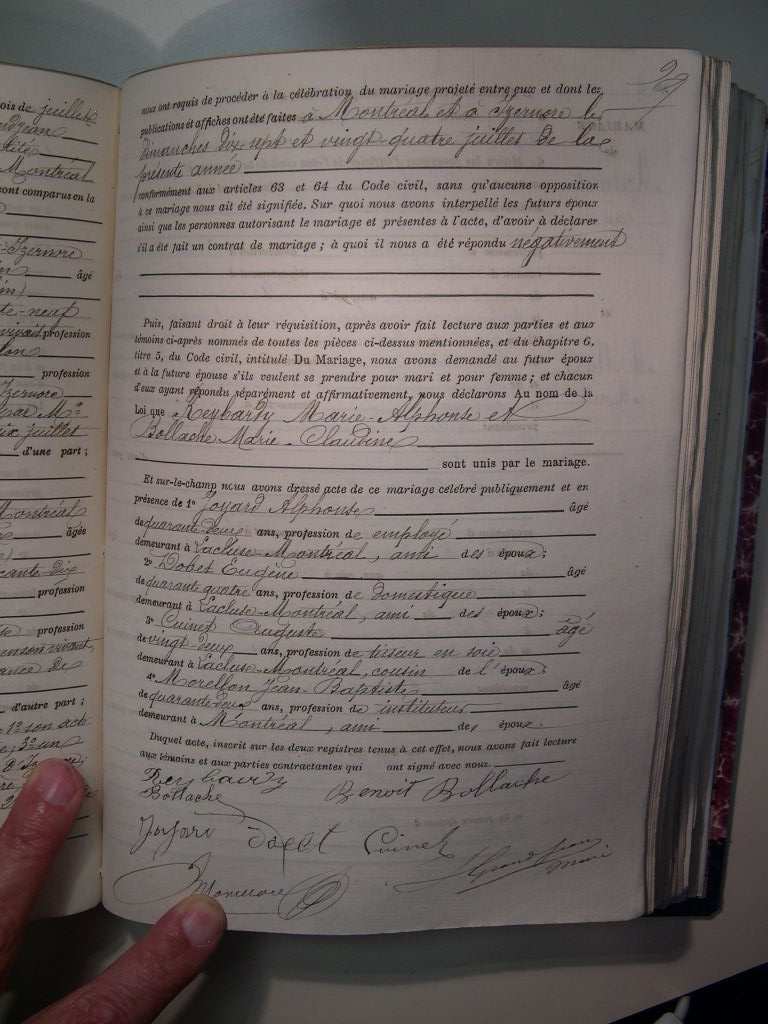 ois de juillet
Montréal
ont comparus en la
Izernore
âgé
te-neuf
profession
profession
Izernore
ix juillet
d'une part ;
Montréal
âgée
profession
profession
d'autre part ;
29
nous ont requis de procéder à la célébration du mariage projeté entre eux et dont les
publications et affiches ont été faites à Montréal et à Izernore le
dimanches dix sept et vingt-quatre juillet de la
présente année
conformément aux articles 63 et 64 du Code civil, sans qu'aucune opposition
à ce mariage nous ait été signifiée. Sur quoi nous avons interpellé les futurs époux
ainsi que les personnes autorisant le mariage et présentes à l'acte, d'avoir à déclarer
s'il a été fait un contrat de mariage ; à quoi il nous a été répondu négativement
Puis, faisant droit à leur réquisition, après avoir fait lecture aux parties et aux
témoins ci-après nommés de toutes les pièces ci-dessus mentionnées, et du chapitre 6,
titre 5, du Code civil, intitulé Du Mariage, nous avons demandé au futur époux
et à la future épouse s'ils veulent se prendre pour mari et pour femme ; et chacun
d'eux ayant répondu séparément et affirmativement, nous déclarons Au nom de la
Loi que Reybardy Marie-Alphonse et
Bollache Marie-Claudine
sont unis par le mariage.
Et sur-le-champ nous avons dressé acte de ce mariage célébré publiquement et en
présence de 1º Joyard Alphonse âgé
de quarante deux ans, profession de employé
demeurant à Lacluse-Montréal, ami des époux ;
2º Dobet Eugène âgé
de quarante quatre ans, profession de domestique
demeurant à Lacluse-Montréal, ami des époux ;
3º Cuinet Auguste âgé
de vingt deux ans, profession de tisseur en soie
demeurant à Lacluse-Montréal, cousin de l'époux ;
4º Morellon Jean-Baptiste âgé
de quarante deux ans, profession de instituteur
demeurant à Montréal, ami des époux.
Duquel acte, inscrit sur les deux registres tenus à cet effet, nous avons fait lecture
aux témoins et aux parties contractantes qui ont signé avec nous.
Reybardy Benoit Bollache
Bollache
Cuinet